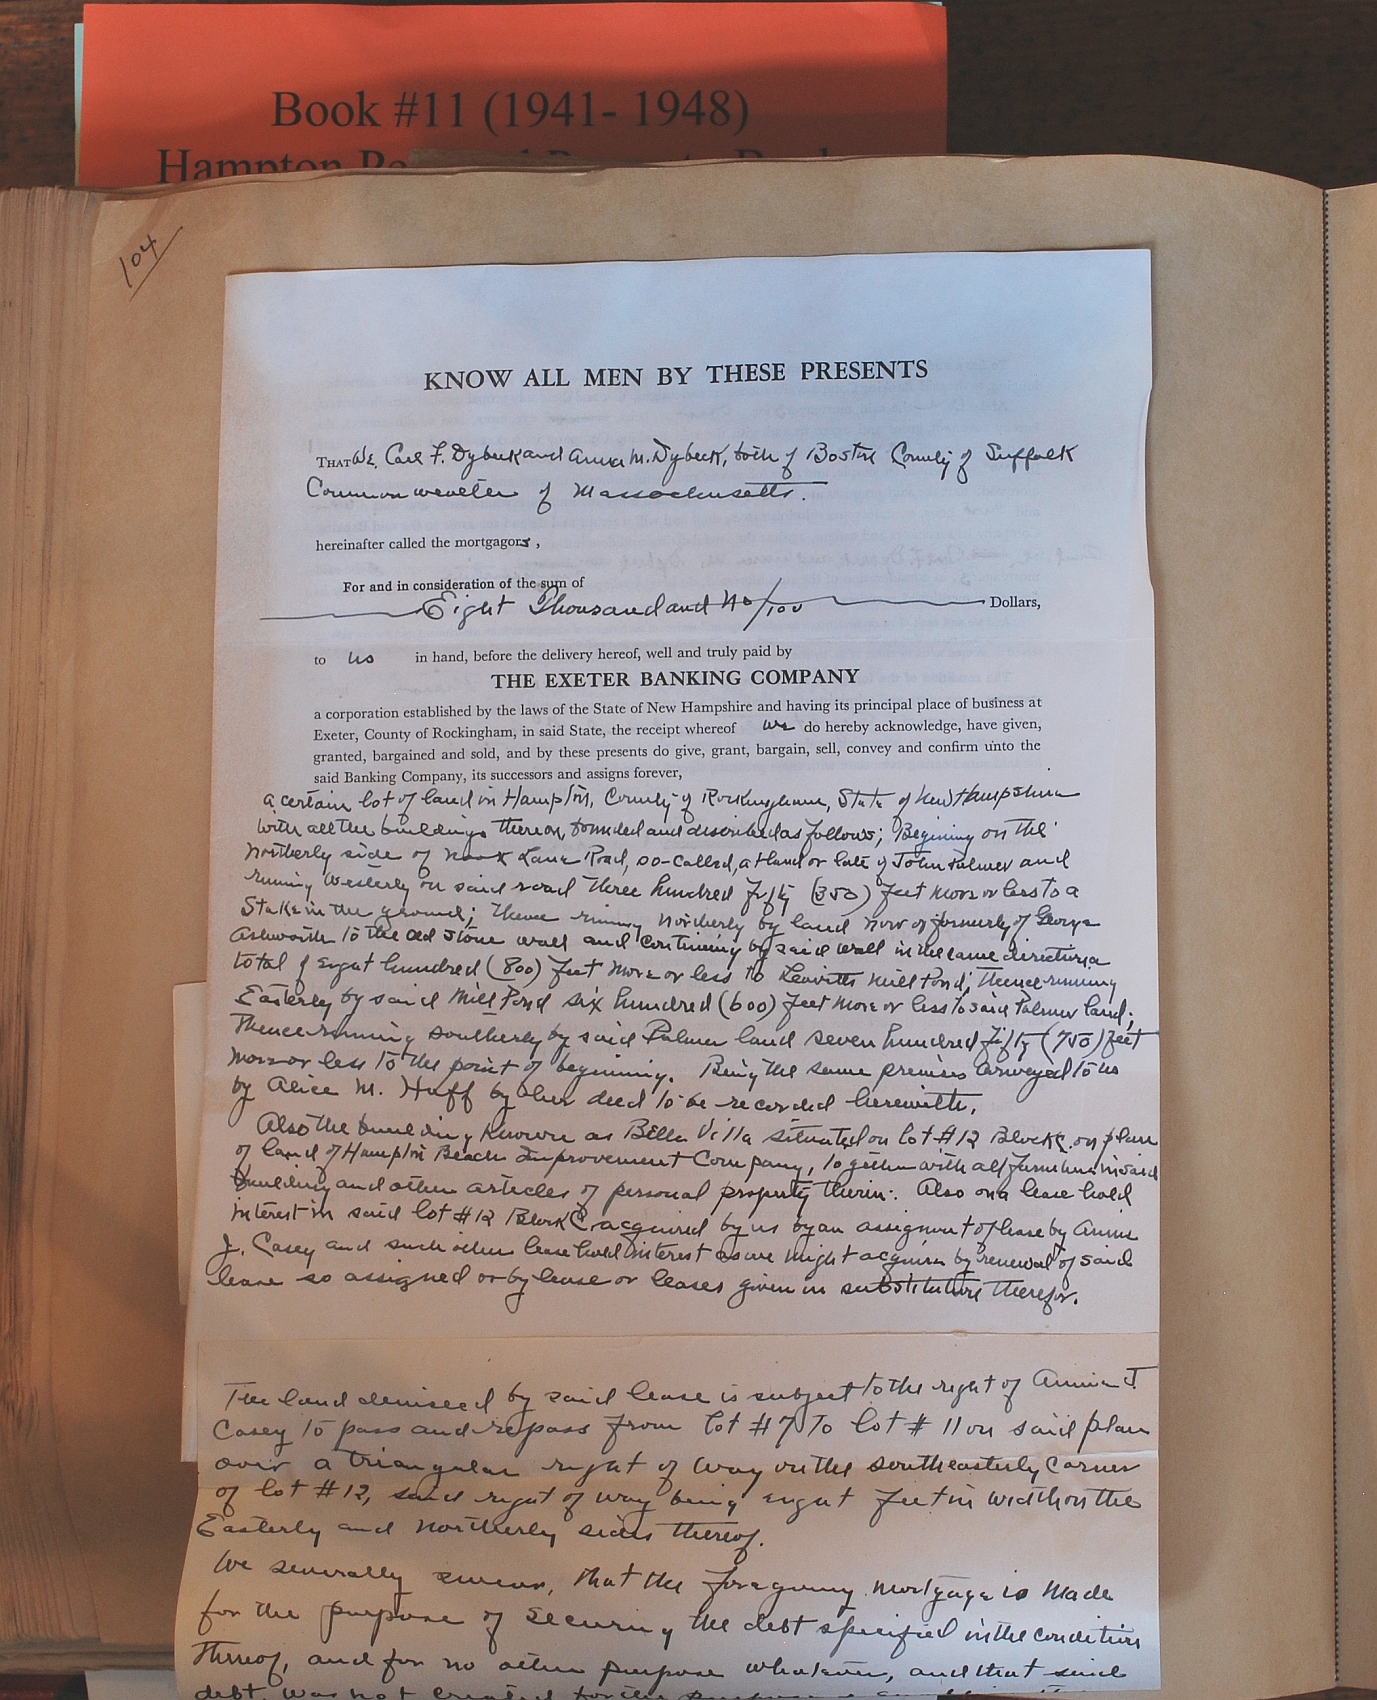 Book #11 (1941- 1948)
Hampton
104
KNOW ALL MEN BY THESE PRESENTS
THAT We, Carl F. Dybeck and Anna M. Dybeck, both of Boston County of Suffolk
Commonwealth of Massachusetts.
hereinafter called the mortgagors,
For and in consideration of the sum of
Eight Thousand and no/100 Dollars,
to us in hand, before the delivery hereof, well and truly paid by
THE EXETER BANKING COMPANY
a corporation established by the laws of the State of New Hampshire and having its principal place of business at
Exeter, County of Rockingham, in said State, the receipt whereof we do hereby acknowledge, have given,
granted, bargained and sold, and by these presents do give, grant, bargain, sell, convey and confirm unto the
said Banking Company, its successors and assigns forever,
a certain lot of land in Hampton, County of Rockingham, State of New Hampshire
with all the buildings thereon, bounded and described as follows; Begining on the
Northerly side of Nook Lane Road, so-called, at land or late of John Palmer and
runing Westerly on said road three hundred fifty (350) feet more or less to a
Stake in the ground; thence runing Northerly by land now or formerly of George
Ashworth to the old stone wall and continuing by said wall in the same direction a
total of eight hundred (800) feet more or less to Leavitts Mill Pond; thence running
Easterly by said Mill Pond six hundred (600) feet more or less to said Palmer land;
Thence running southerly by said Palmer land seven hundred fifty (750) feet
more or less to the point of beginning. Being the same premises conveyed to us
by Alice M. Huff by her deed to be recorded herewith.
Also the building known as Bella Villa situated on lot #12 Block C. on plan
of land of Hampton Beach Improvement Company, together with all furniture in said
building and other articles of personal property therin. Also our lease hold
interest in said lot #12 Block C. acquired by us by an assignment of lease by Annie
J. Casey and such other lease hold interest as we might acquire by renewal of said
lease so assigned or by lease or leases given in substitution therefor.
The land demised by said lease is subject to the right of Annie J.
Casey to pass and repass from lot #7 to lot #11 on said plan
over a triangular right of way on the southeasterly corner
of lot #12, said right of way being eight feet in width on the
Easterly and Northerly sides thereof.
We severally swear, that the foregoing mortgage is made
for the purpose of securing the debt specified in the condition
thereof, and for no other purpose whatever, and that said
debt was not created for the purpose